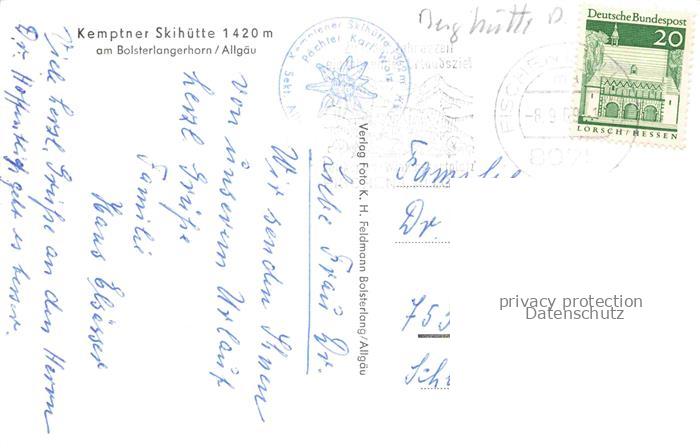 Kemptner Skihütte 1420 m
am Bolsterlangerhorn / Allgäu
Liebe Frau Dr.
Wir senden Ihnen
von unserem Urlaub
herzl. Grüße
Familie
Hans Elsässer
Viele herzl. Grüße an den Herrn
Dr. Hoffentlich geht es besser.
Verlag Foto K. H. Feldmann Bolsterlang/Allgäu
Kemptener Skihütte
Pächter Karl
Berghütte
Deutsche Bundespost
20
LORSCH / HESSEN
FISCHEN
-8.9.6
Familie
Dr.
753
privacy protection
Datenschutz